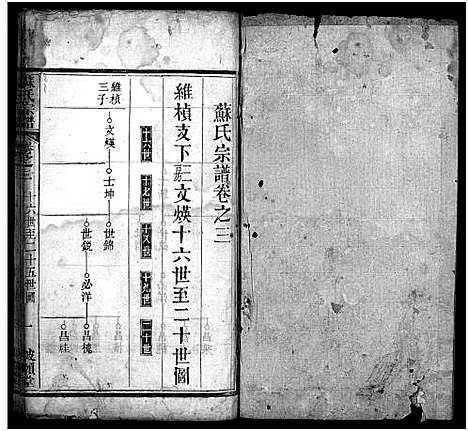 蘇氏宗譜卷之三
維楨支下三房文煐十六世至二十世圖
十六世
十七世
十八世
十九世
二十世
維楨三子
文煐
士坤
世錦
世銳
必洋
昌桃
昌桂
十六世至二十五世圖
一